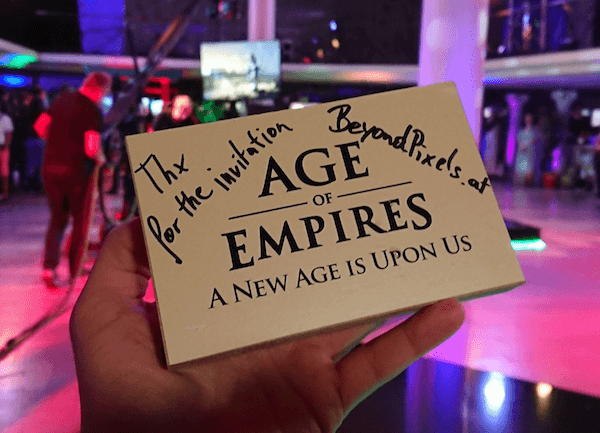 Thx
for the invitation
BeyondPixels.at
AGE
OF
EMPIRES
A NEW AGE IS UPON US